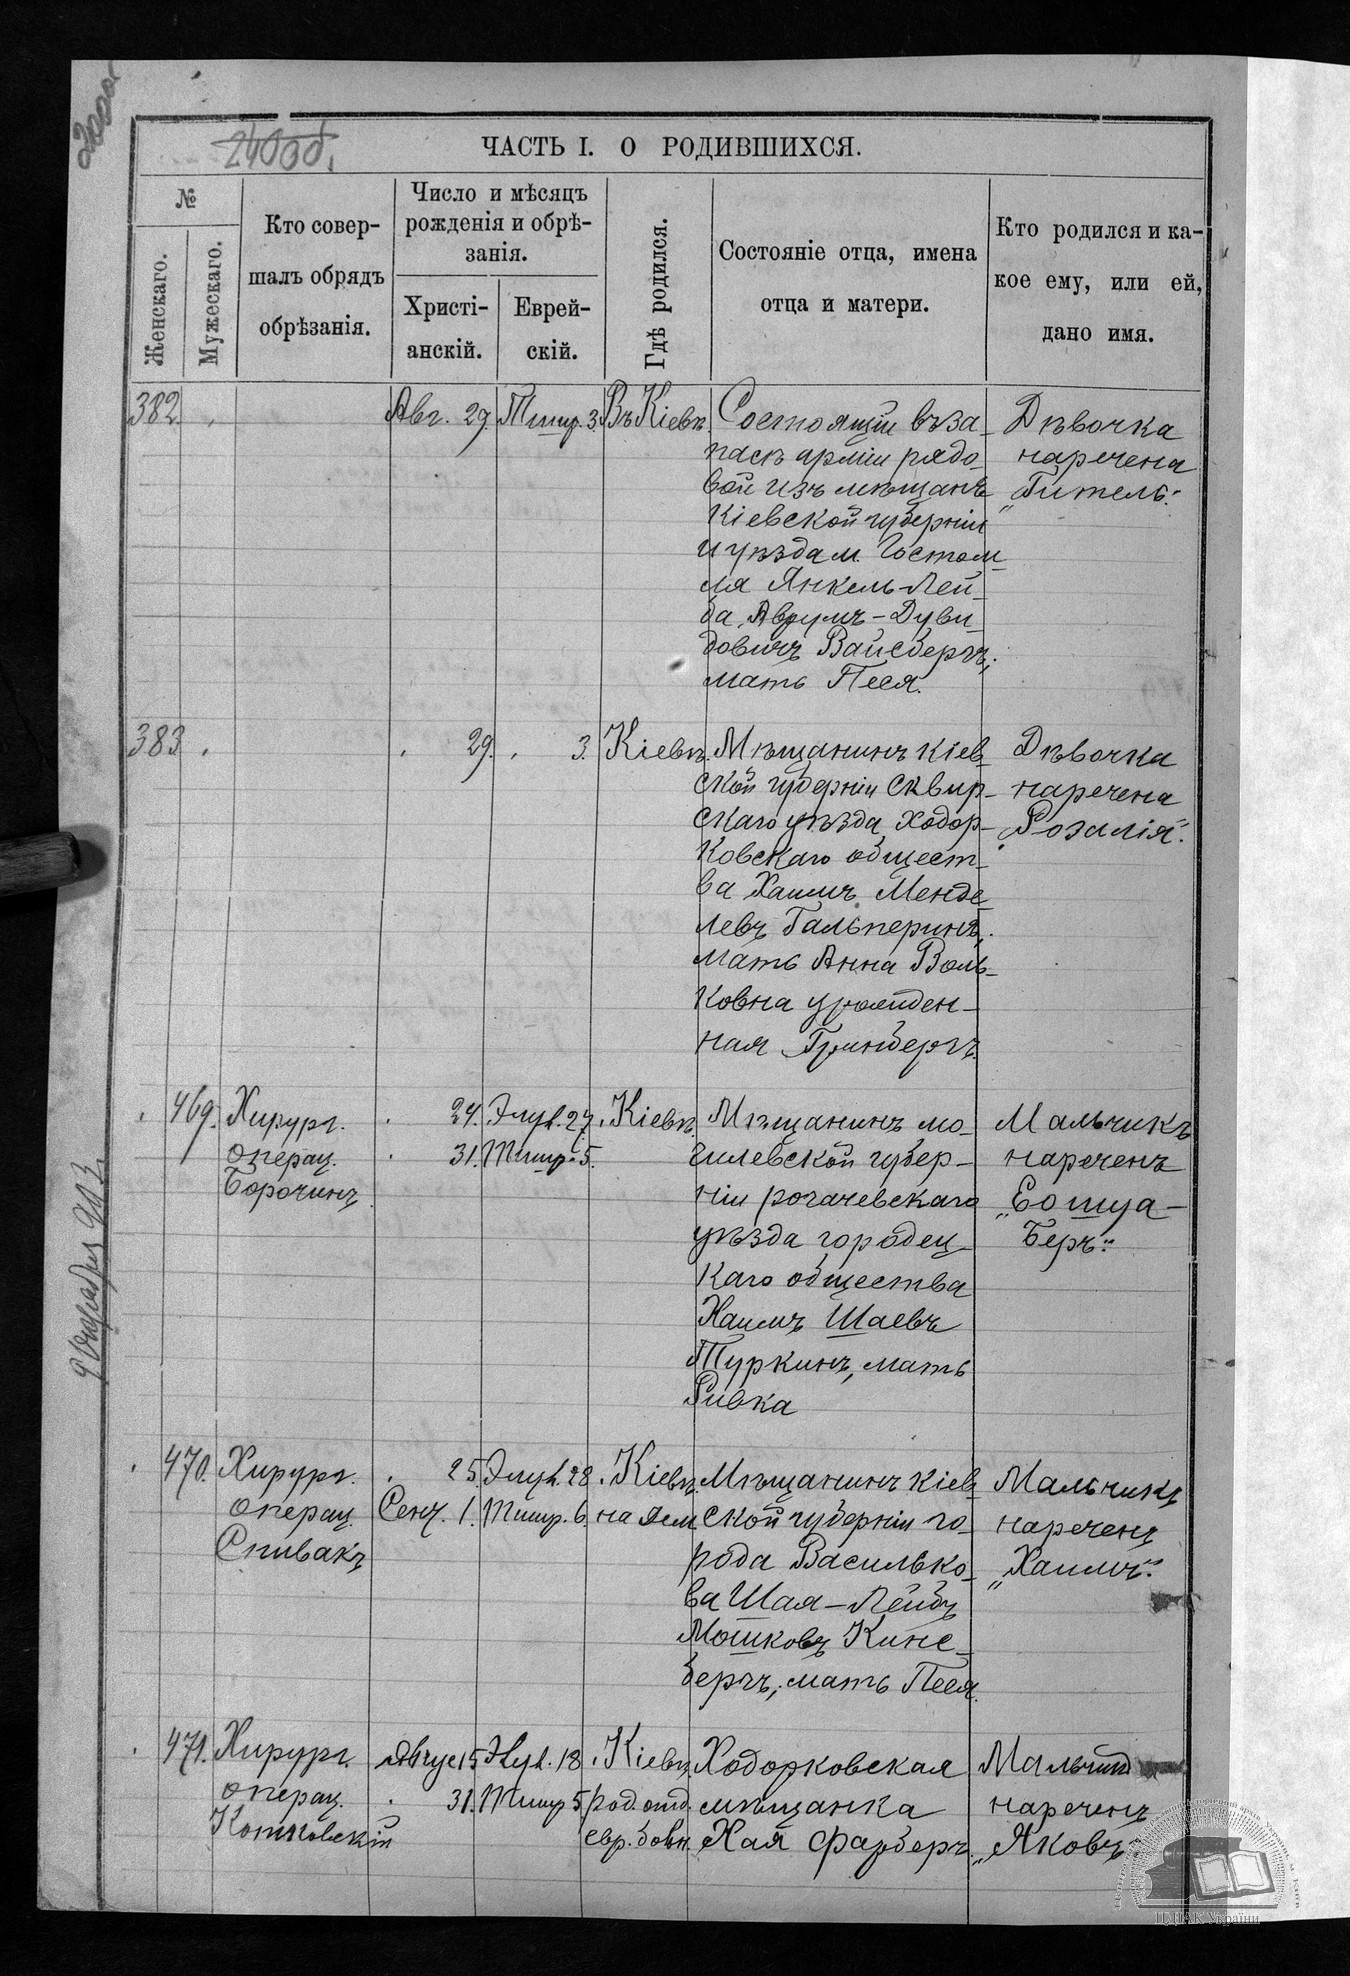 ЧАСТЬ I. О РОДИВШИХСЯ.
№
Женскаго.
Мужескаго.
Кто совер-
шалъ обрядъ
обрѣзанія.
Число и мѣсяцъ
рожденія и обрѣ-
занія.
Христі-
анскій.
Еврей-
скій.
Гдѣ родился.
Состояніе отца, имена
отца и матери.
Кто родился и ка-
кое ему, или ей,
дано имя.
382
Авг. 29.
Тишр. 3.
Въ Кіевѣ.
Состоящій въ за-
пасѣ арміи рядо-
вой изъ мѣщанъ
Кіевской губерніи
и уѣзда м. Гостом-
ля Янкель-Лей-
ба Аврумъ-Дуви-
довичъ Вайсбергъ;
мать Песя.
Дѣвочка
наречена
„Гитель".
383
29.
3.
Кіевѣ.
Мѣщанинъ Кіев-
ской губерніи Сквир-
скаго уѣзда Ходор-
ковскаго общест-
ва Хаимъ Менде-
левъ Гальперинъ,
мать Анна Воль-
ковна урожден-
ная Гринбергъ.
Дѣвочка
наречена
„Розалія".
469.
Хирург.
операц.
Борочинъ
24.
31.
Элул. 27.
Тишр. 5.
Кіевѣ.
Мѣщанинъ мо-
гилевской губер-
ніи рогачевскаго
уѣзда городец-
каго общества
Хаимъ Шаевъ
Туркинъ, мать
Ривка
Мальчикъ
нареченъ
„Еошуа-
Беръ".
470.
Хирург.
операц.
Спивакъ
25.
Сент. 1.
Элул. 28
Тишр. 6.
Кіевѣ.
на Дем.
Мѣщанинъ Кіев-
ской губерніи го-
рода Василько-
ва Шая-Лейбъ
Мошковъ Кинс-
бергъ, мать Песя.
Мальчикъ
нареченъ
„Хаимъ".
471.
Хирург.
операц.
Котковскій
Август 15
31.
Элул. 18
Тишр 5
Кіевѣ
род. отд.
евр. болн.
Ходорковская
мѣщанка
Хая Фарберъ.
Мальчик
нареченъ
„Яковъ"
ЦДІАК України